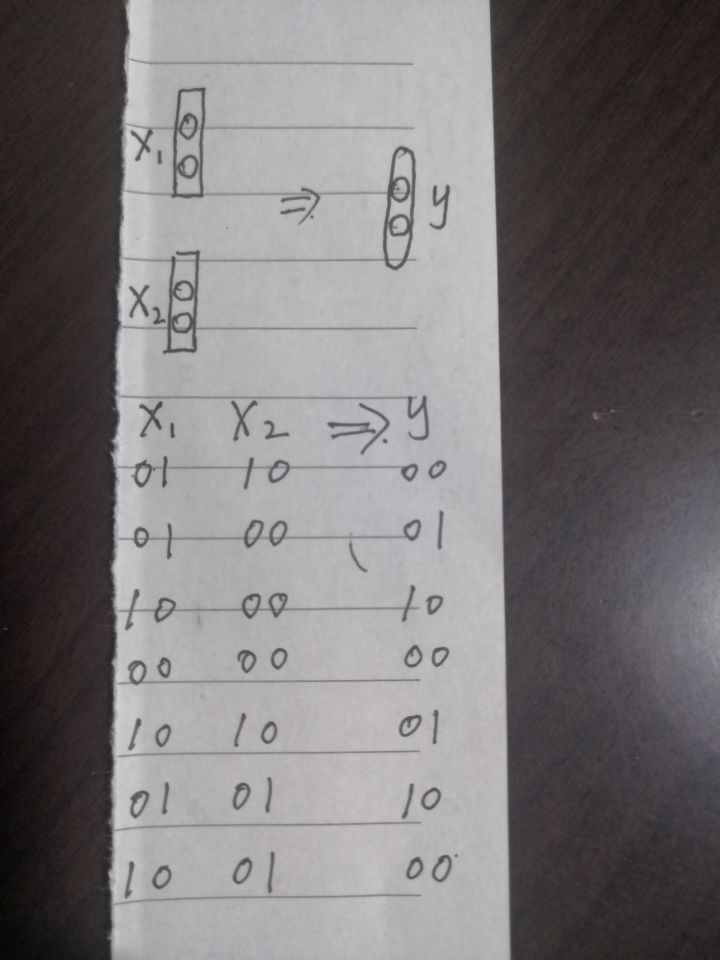 X₁
⇒ y
X₂
X₁ X₂ ⇒ y
01 10 00
01 00 01
10 00 10
00 00 00
10 10 01
01 01 10
10 01 00